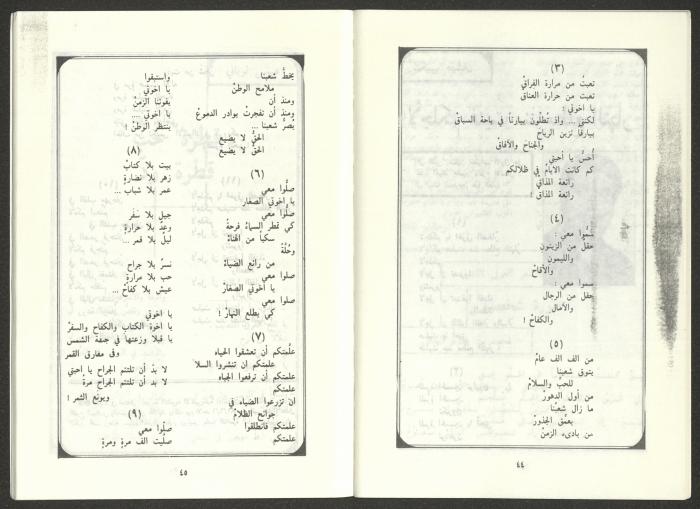 (٣)
تعبتُ من مرارة الفراقْ
تعبت من حرارة العناقْ
يا اخوتي :
لكنني ... واذ تُطلون بيارقاً في باحة السباقْ
بيارقاً تزين الرياح
والجناح والآفاق
أُحسُّ يا أحبتي
كم كانت الأيامُ في ظلالكم
رائعة المذاقِ
رائعة المذاق !
(٤)
سمُّوا معي :
حقلٌ من الزيتون
والليمون
والأقاحْ
سموا معي :
حفل من الرجال
والآمال
والكفاحْ !
(٥)
من الف الف عامْ
يتوق شعبنا
للحبِّ والسلامْ
من أول الدهورْ
ما زال شعبُنا
يعمِّق الجذورْ
من بادىء الزمنْ
٤٤
يخطُّ شعبنا
ملامح الوطنْ
ومنذ أن
ومنذ أن تفجرتْ بوادر الدموعْ
يُصرُّ شعبنا ...
الحقُّ لا يضيع
الحقُّ لا يضيع
(٦)
صلُّوا معي
يا اخوتي الصغار
صلُّوا معي
كي تمطر السماءُ فرحةً
سكباً من الهناءْ
وحُلَّةً
من رائع الضياءْ
صلوا معي
يا أخوتي الصغارْ
صلوا معي
كي يطلع النهارْ !
(٧)
علَّمتكم أن تعشقوا الحياه
علمتكم ان تنشروا السلا
علمتكم أن ترفعوا الجباه
علمتكم
ان تزرعوا الضياء في
جوانح الظلامْ
علمتكم فانطلقوا
علمتكم
واستبقوا
يا اخوتي
يفوتنا الزمنْ
يا اخوتي ....
ينتظر الوطنْ !
(٨)
بيت بلا كتابْ
زهر بلا نضارةٍ
عمر بلا شباب ...
جيل بلا سَفَر
وعدٌ بلا حرارةٍ
ليلٌ بلا قمر ...
نسرٌ بلا جراح
حب بلا مرارةٍ
عيش بلا كفاحْ ...
يا اخوتي
يا اخوة الكتاب والكفاح والسفرْ
يا قبلا وزعتها في جبهة الشمس
وفى مفارق القمر
لا بدّ أن تلتئم الجراح يا احبتي
لا بد أن تلتئم الجراح مرة
ويونع الثمر !
(٩)
صلُّوا معي
صلَّيت الف مرةٍ ومرةٍ
٤٥